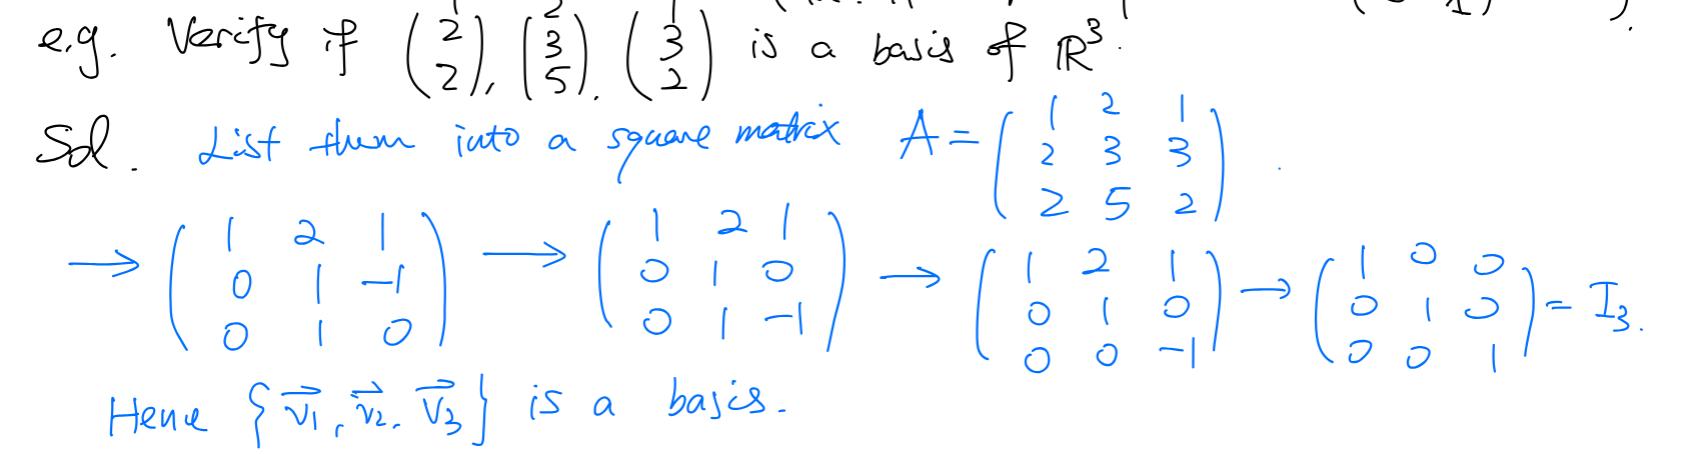 e.g. Verify if (1 2 2), (2 3 5), (1 3 2) is a basis of ℝ³.
Sol. List them into a square matrix A = (1 2 1; 2 3 3; 2 5 2).
→ (1 2 1; 0 1 -1; 0 1 0) → (1 2 1; 0 1 0; 0 1 -1) → (1 2 1; 0 1 0; 0 0 -1) → (1 0 0; 0 1 0; 0 0 1) = I₃.
Hence {v⃗₁, v⃗₂, v⃗₃} is a basis.